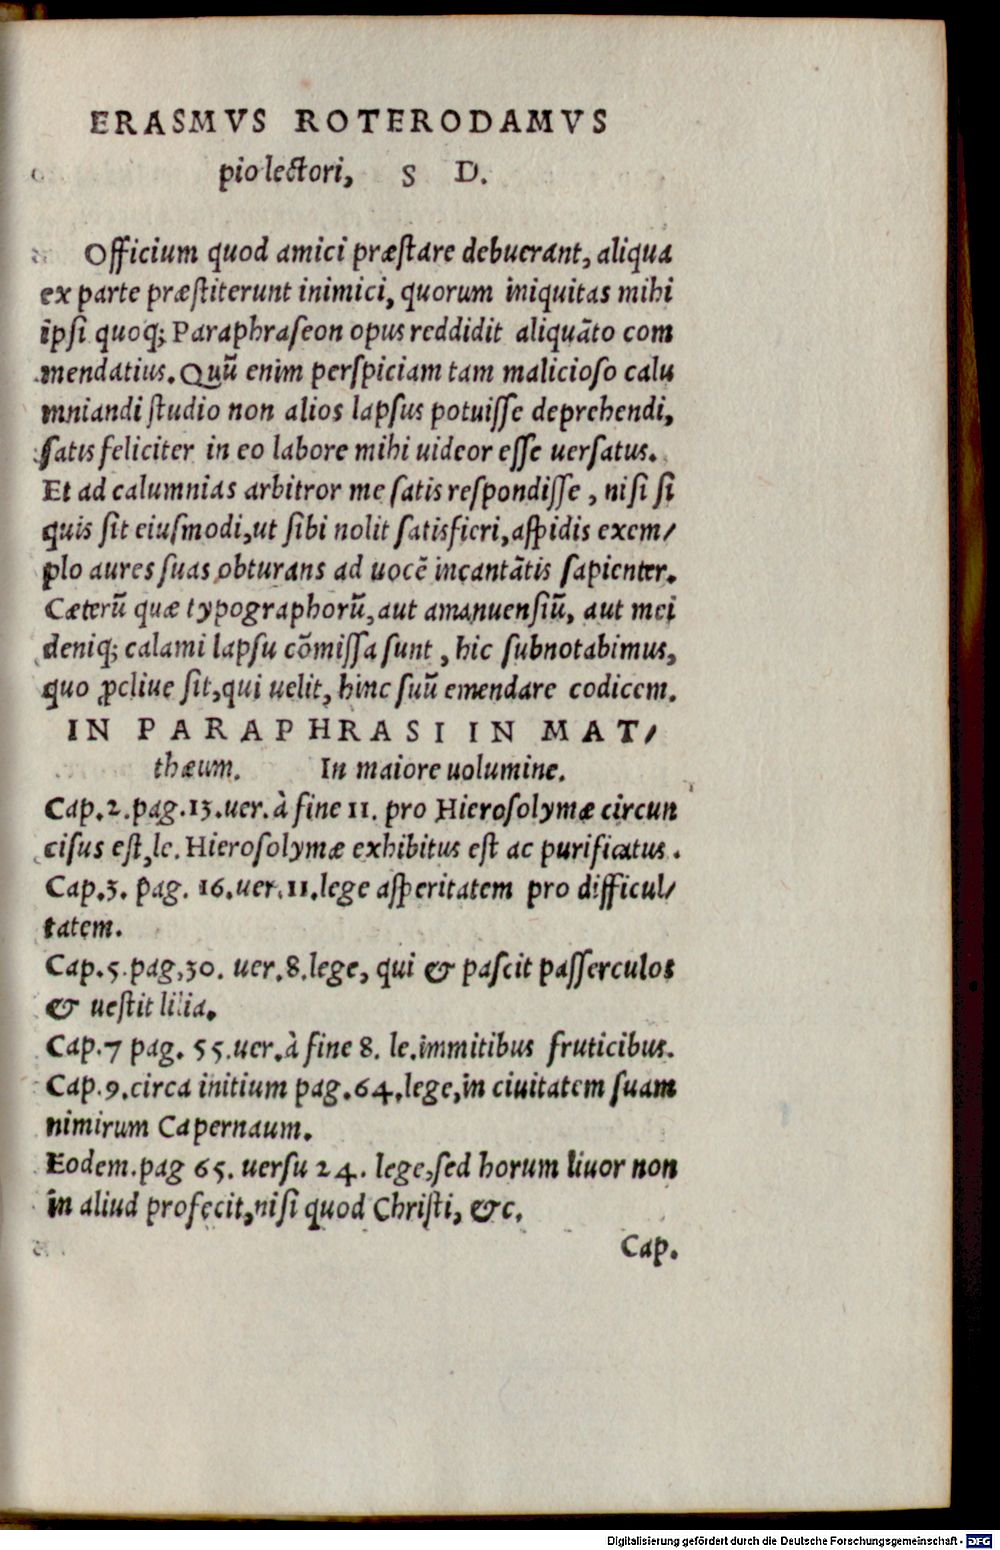 ERASMVS ROTERODAMVS
pio lectori, S D.
Officium quod amici præſtare debuerant, aliqua
ex parte præſtiterunt inimici, quorum iniquitas mihi
ipſi quoq; Paraphraſeon opus reddidit aliquãto com
mendatius. Quũ enim perſpiciam tam malicioſo calu
mniandi ſtudio non alios lapſus potuiſſe deprehendi,
ſatis feliciter in eo labore mihi uideor eſſe uerſatus.
Et ad calumnias arbitror me ſatis reſpondiſſe, niſi ſi
quis ſit eiuſmodi, ut ſibi nolit ſatisfieri, aſpidis exem/
plo aures ſuas obturans ad uocẽ incantãtis ſapienter.
Cæterũ quæ typographorũ, aut amanuenſiũ, aut mei
deniq; calami lapſu cõmiſſa sunt, hic ſubnotabimus,
quo ꝓcliue ſit, qui uelit, hinc ſuũ emendare codicem.
IN PARAPHRASI IN MAT/
thæum. In maiore uolumine.
Cap. 2. pag. 13. uer. à fine 11. pro Hieroſolymæ circun
ciſus eſt, le. Hieroſolymæ exhibitus eſt ac purificatus.
Cap. 3. pag. 16. uer. 11. lege aſperitatem pro difficul/
tatem.
Cap. 5. pag. 30. uer. 8. lege, qui & paſcit paſſerculos
& ueſtit lilia.
Cap. 7 pag. 55. uer. à fine 8. le. immitibus fruticibus.
Cap. 9. circa initium pag. 64. lege, in ciuitatem ſuam
nimirum Capernaum.
Eodem. pag 65. uerſu 24. lege, ſed horum liuor non
in aliud profecit, niſi quod Chriſti, &c.
Cap.
Digitalisierung gefördert durch die Deutsche Forschungsgemeinschaft - DFG